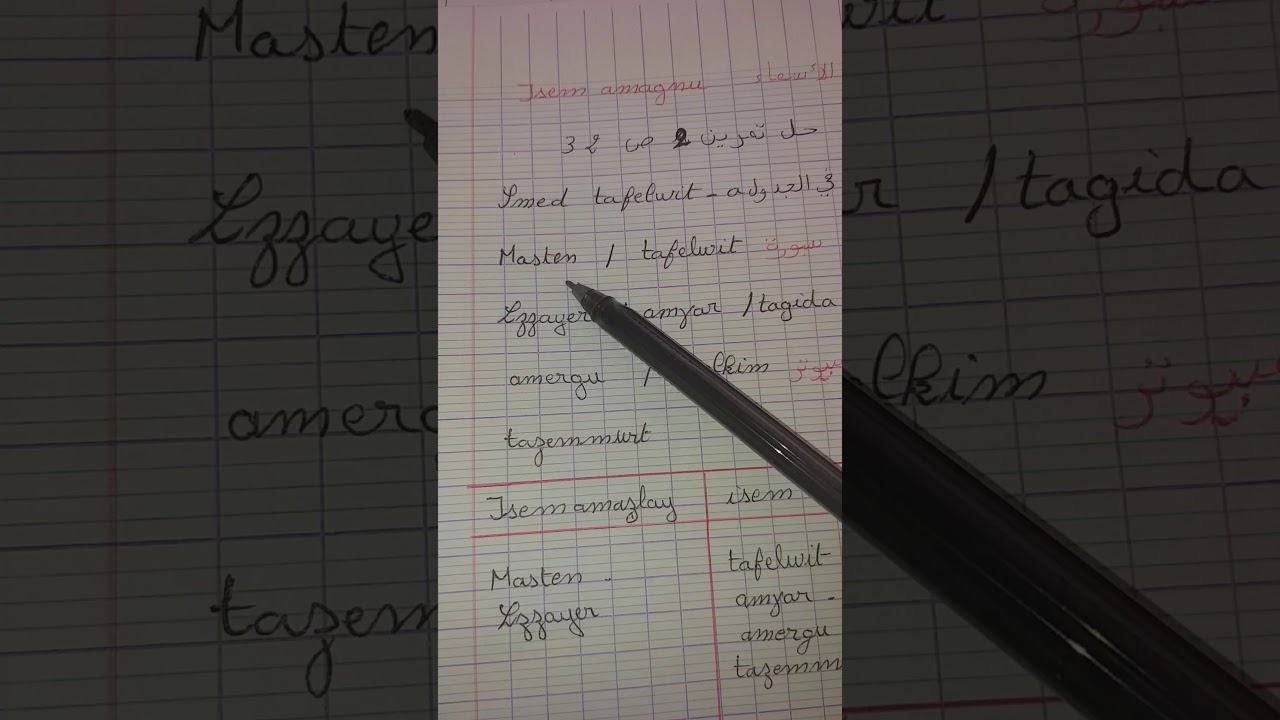 Isem amagnu الأسماء
حل تمرين 2 ص 32
Smed tafelwit - في الجدول
Masten / tafelwit سبورة
Lzzayer / amɣar / tagida
amergu /
tazemmurt
Isem amaẓlay isem
Masten - tafelwit
Lzzayer amɣar -
amergu
tazemm